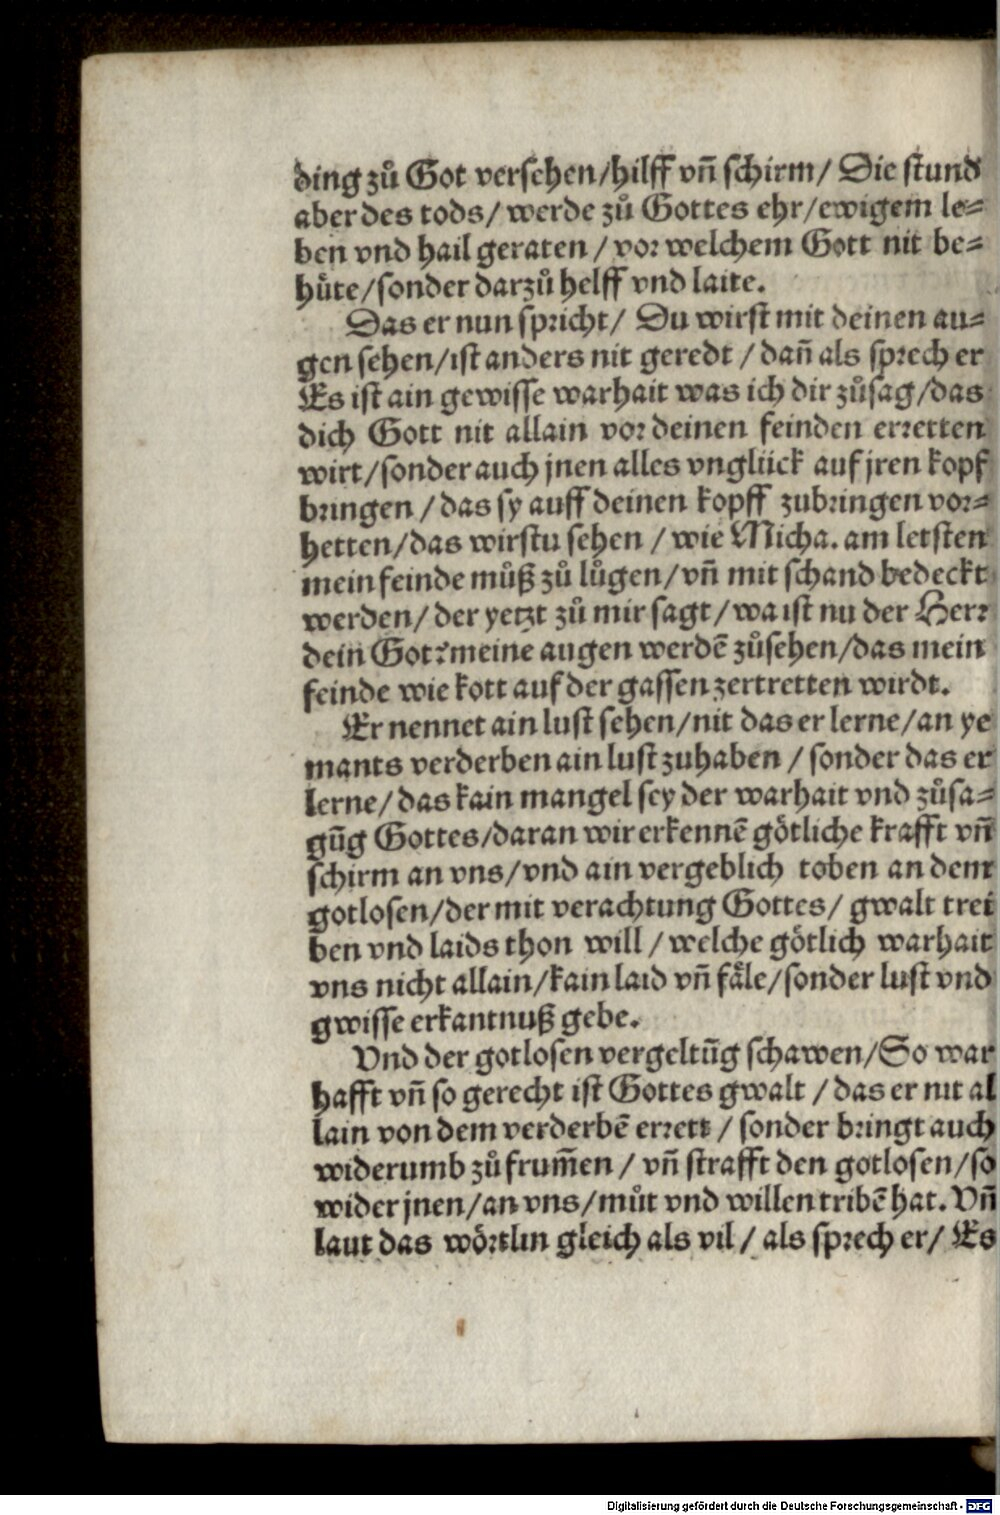 ding zů Got versehen/hilff vñ schirm/ Die stund
aber des tods/ werde zů Gottes ehr/ewigem le-
ben vnd hail geraten / vor welchem Gott nit be-
hüte/sonder darzů helff vnd laite.
Das er nun spricht/ Du wirst mit deinen au-
gen sehen/ist anders nit geredt / dañ als sprech er
Es ist ain gewisse warhait was ich dir zůsag/das
dich Gott nit allain vor deinen feinden erretten
wirt/sonder auch jnen alles vnglück auf jren kopf
bringen / das sy auff deinen kopff zubringen vor-
hetten/das wirstu sehen / wie Micha. am letsten
mein feinde můß zů lůgen/vñ mit schand bedeckt
werden/ der yetzt zů mir sagt/wa ist nu der Herr
dein Got?meine augen werdē zůsehen/das mein
feinde wie kott auf der gassen zertretten wirdt.
Er nennet ain lust sehen/nit das er lerne/an ye
mants verderben ain lust zuhaben / sonder das er
lerne/das kain mangel sey der warhait vnd zůsa-
gũg Gottes/daran wir erkennē götliche krafft vñ
schirm an vns/vnd ain vergeblich toben an dem
gotlosen/der mit verachtung Gottes/ gwalt trei
ben vnd laids thon will / welche götlich warhait
vns nicht allain/kain laid vñ fäle/sonder lust vnd
gwisse erkantnuß gebe.
Vnd der gotlosen vergeltũg schawen/So war
hafft vñ so gerecht ist Gottes gwalt / das er nit al
lain von dem verderbē errett / sonder bringt auch
widerumb zů frum̃en / vñ strafft den gotlosen/so
wider jnen/an vns/můt vnd willen tribē hat. Vñ
laut das wörtlin gleich als vil / als sprech er/ Es
Digitalisierung gefördert durch die Deutsche Forschungsgemeinschaft - DFG